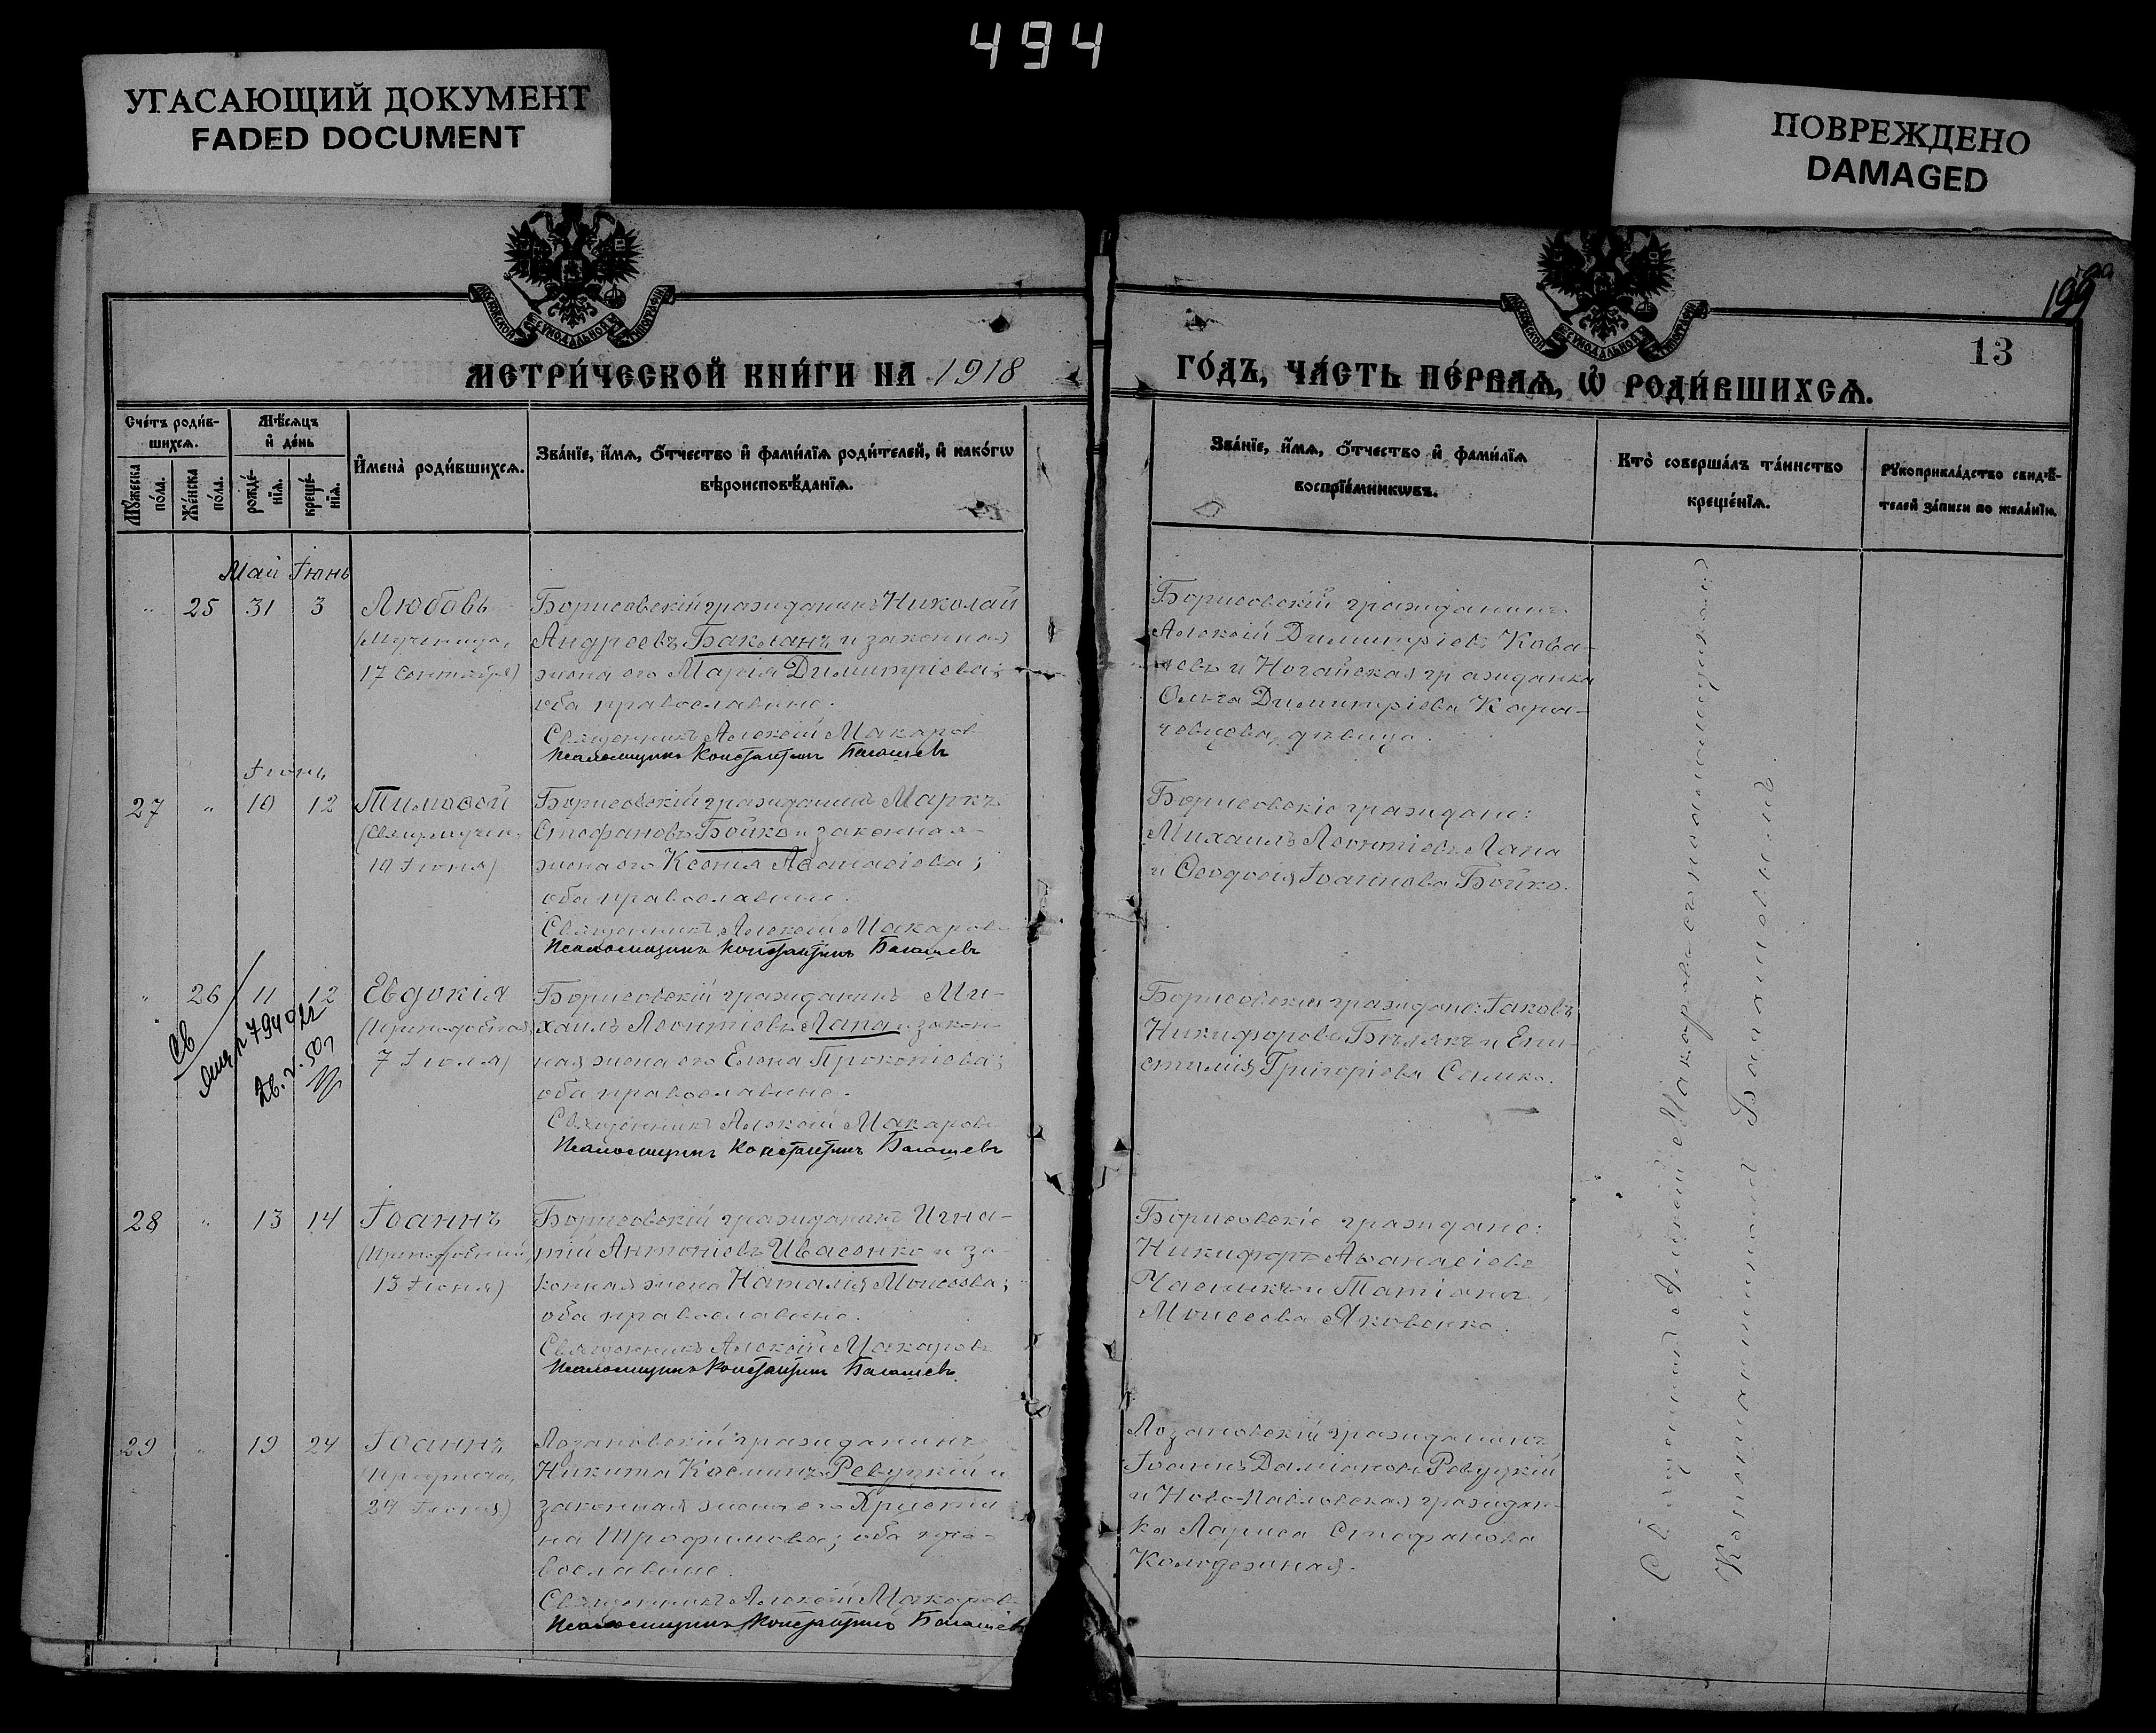 494
УГАСАЮЩИЙ ДОКУМЕНТ
FADED DOCUMENT
ПОВРЕЖДЕНО
DAMAGED
МОСКОВСКОЙ СѴНОДАЛЬНОЙ ТИПОГРАФІИ
МОСКОВСКОЙ СѴНОДАЛЬНОЙ ТИПОГРАФІИ
199
13
МЕТРИ́ЧЕСКОЙ КНИ́ГИ НА 1918
ГО́ДЪ, ЧА́СТЬ ПЕ́РВАѦ, Ѽ РОДИ́ВШИХСѦ.
Сче́тъ роди́в-
шихсѧ.
Мꙋ́жеска
по́ла.
Же́нска
по́ла.
Мѣ́сѧцъ
и҆ де́нь
рожде́-
нїѧ.
креще́-
нїѧ.
И҆мена̀ роди́вшихсѧ.
Зва́нїе, и҆́мѧ, ѻ҆́тчество и҆ фами́лїѧ роди́телей, и҆ како́гѡ
вѣроисповѣ́данїѧ.
Зва́нїе, и҆́мѧ, ѻ҆́тчество и҆ фами́лїѧ
воспрїе́мникѡвъ.
Кто̀ соверша́лъ та́инство
креще́нїѧ.
Рꙋкоприкла́дство свидѣ́-
телей за́писи по жела́нїю.
Май Іюнь
" 25 31 3
Любовь
(Мученица,
17 Сентября)
Борисовскій гражданинъ Николай
Андреевъ Бакланъ и законная
жена его Марія Димитріева;
оба православные.
Священникъ Алексій Макаров
Псаломщикъ Константинъ Балашев
Борисовскій гражданинъ
Алексій Димитріевъ Кова-
левъ и Ногайская гражданка
Ольга Димитріева Кара-
човцева, дѣвица.
Іюнь
27 " 10 12
Тимоѳей
(Свящмучен.
10 Іюня)
Борисовскій гражданинъ Маркъ
Стефановъ Бойко и законная
жена его Ксенія Аѳанасіева;
оба православные.
Священникъ Алексій Макаровъ
Псаломщикъ Константинъ Балашев
Борисовскіе граждане:
Михаилъ Леонтіевъ Лапа
и Ѳеодосія Іоаннова Бойко.
" 26 11 12
Евдокія
(Преподобная,
7 Іюля)
Св
26. 2. 50 г
Борисовскій гражданинъ Ми-
хаилъ Леонтіевъ Лапа и закон-
ная жена его Елена Прокопіева;
оба православные.
Священникъ Алексій Макаровъ
Псаломщикъ Константинъ Балашевъ
Борисовскіе граждане: Іаковъ
Никифоровъ Бѣлякъ и Епи-
стимія Григоріева Самко.
28 " 13 14
Іоаннъ
(Преподобный,
13 Іюня)
Борисовскій гражданинъ Игна-
тій Антоніевъ Ивасенко и за-
конная жена Наталія Моисеева;
оба православные.
Священникъ Алексій Макаровъ
Псаломщикъ Константинъ Балашевъ
Борисовскіе граждане:
Никифоръ Аѳанасіевъ
Часныкъ и Татіана
Моисеева Яковенко.
29 " 19 24
Іоаннъ
(Предтеча,
24 Іюня)
Лозановскій гражданинъ
Никита Косминъ Ревуцкій и
законная жена его Христи-
на Трофимова; оба пра-
вославные.
Священникъ Алексій Макаровъ
Псаломщикъ Константинъ Балашевъ
Лозановскій гражданинъ
Іоаннъ Даміановъ Ревуцкій
и Ново-Павловская граждан-
ка Лариса Стефанова
Колодежная.
Священникъ Алексій Макаровъ съ псаломщикомъ
Константиномъ Балашевымъ.